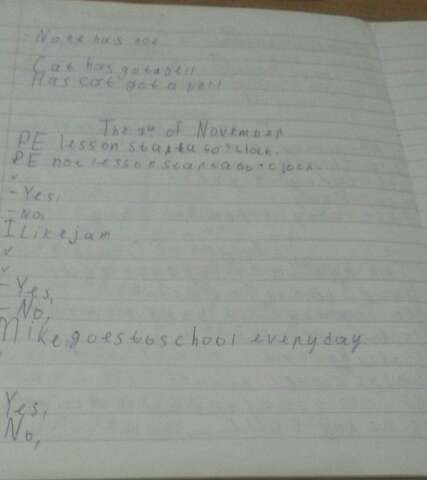 - No he has not
Cat has got a bell
Has cat got a bell
The of November
PE lesson starta 60'clock.
PE not lesson starta 60'clock.
- Yes,
- No,
I Like jam
- Yes,
- No,
Mike goes to school everyday
Yes,
No,